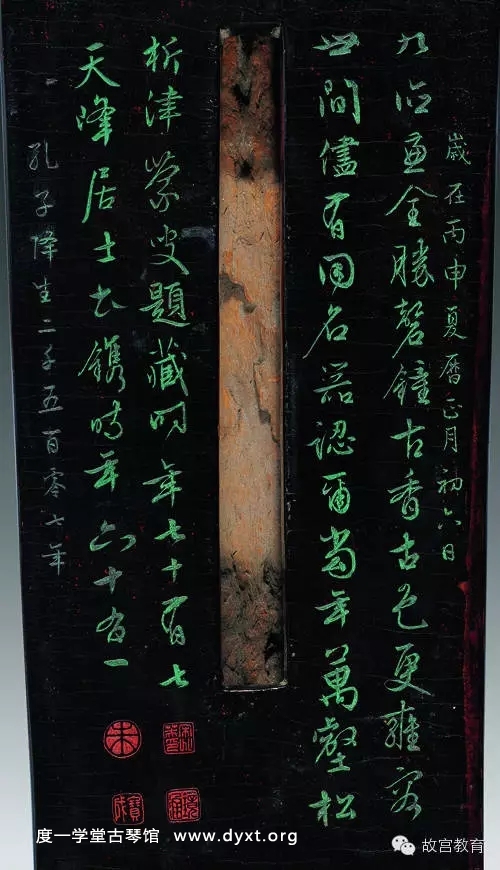 歲在丙申夏曆正月初六日
九德兼全勝磬鐘古香古色更雍容
世間儘有同名器認爾當年萬壑松
析津叟題藏時年七十有七
天峰居士書鐫時年六十有一
孔子降生二千五百零七年
朱
度一学堂古琴馆 www.dyxt.org
故宫教育